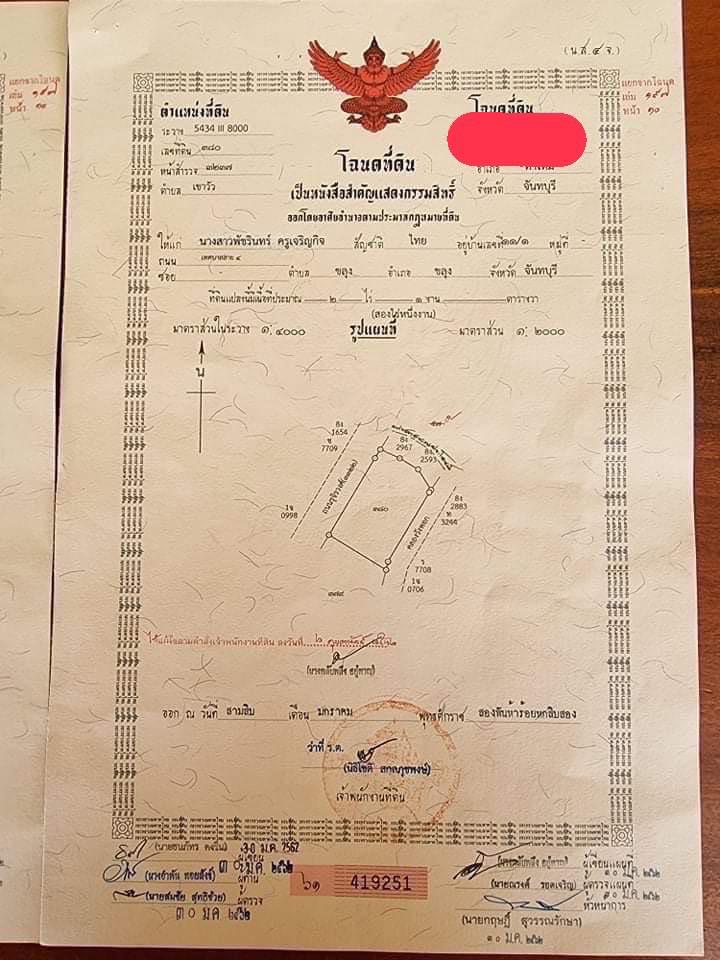 (น.ส.๔ จ.)
แยกจากโฉนด
เล่ม ๑๕๗
หน้า ๑๐
ตำแหน่งที่ดิน
ระวาง 5434 III 8000
เลขที่ดิน ๓๘๐
หน้าสำรวจ ๓๒๓๗
ตำบล เขาวัว
โฉนดที่ดิน
อำเภอ ท่าใหม่
จังหวัด จันทบุรี
โฉนดที่ดิน
เป็นหนังสือสำคัญแสดงกรรมสิทธิ์
ออกโดยอาศัยอำนาจตามประมวลกฎหมายที่ดิน
ให้แก่ นางสาวพัชรินทร์ ครูเจริญกิจ สัญชาติ ไทย อยู่บ้านเลขที่ ๑๑/๑ หมู่ที่ -
ถนน เทศบาลสาย ๔
ซอย ตำบล ขลุง อำเภอ ขลุง จังหวัด จันทบุรี
ที่ดินแปลงนี้มีเนื้อที่ประมาณ ๒ ไร่ ๑ งาน ตารางวา
(สองไร่หนึ่งงาน)
มาตราส่วนในระวาง ๑:๔๐๐๐ รูปแผนที่ มาตราส่วน ๑:๒๐๐๐
น
8ง
1654
ข
7709
8ง
2967
8ง
2593
1จ
0998
๓๘๐
8ง
2883
ท
3244
คลองวังหยก
ว
7708
1จ
0706
๓๗๙
ได้แก้ไขตามคำสั่งเจ้าพนักงานที่ดิน ลงวันที่ ๒ กุมภาพันธ์ ๒๕๖๒
ออก ณ วันที่ สามสิบ เดือน มกราคม พุทธศักราช สองพันห้าร้อยหกสิบสอง
ว่าที่ ร.ต.
เจ้าพนักงานที่ดิน
30 ม.ค. 2562
ผู้เขียน
๓๐ ม.ค. ๒๕๖๒
ผู้ทาน
(นายสมชัย สุทธิช้วย) ผู้ตรวจ
๓๐ ม.ค. ๒๕๖๒
๖๑ 419251
ผู้เขียนแผนที่
๓๐ ม.ค. ๒๕๖๒
(นายณรงค์ รอดเจริญ) ผู้ตรวจแผนที่
๓๐ ม.ค. ๒๕๖๒
หัวหน้าการ
(นายกฤษฎิ์ สุวรรณรักษา)
๓๐ ม.ค. ๒๕๖๒